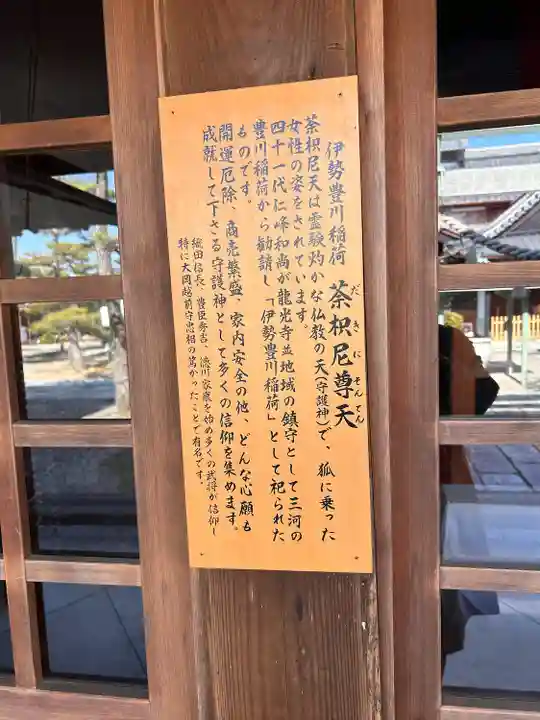 伊勢豊川稲荷 荼枳尼尊天
だきにそんてん
荼枳尼天は霊験灼かな仏教の天(守護神)で、狐に乗った
女性の姿をされています。
四十一代仁峰和尚が龍光寺並地域の鎮守として三河の
豊川稲荷から勧請し「伊勢豊川稲荷」として祀られた
ものです。
開運厄除、商売繁盛、家内安全の他、どんな心願も
成就して下さる守護神として多くの信仰を集めます。
織田信長、豊臣秀吉、徳川家康を始め多くの武将が信仰し
特に大岡越前守忠相の篤かったことで有名です。